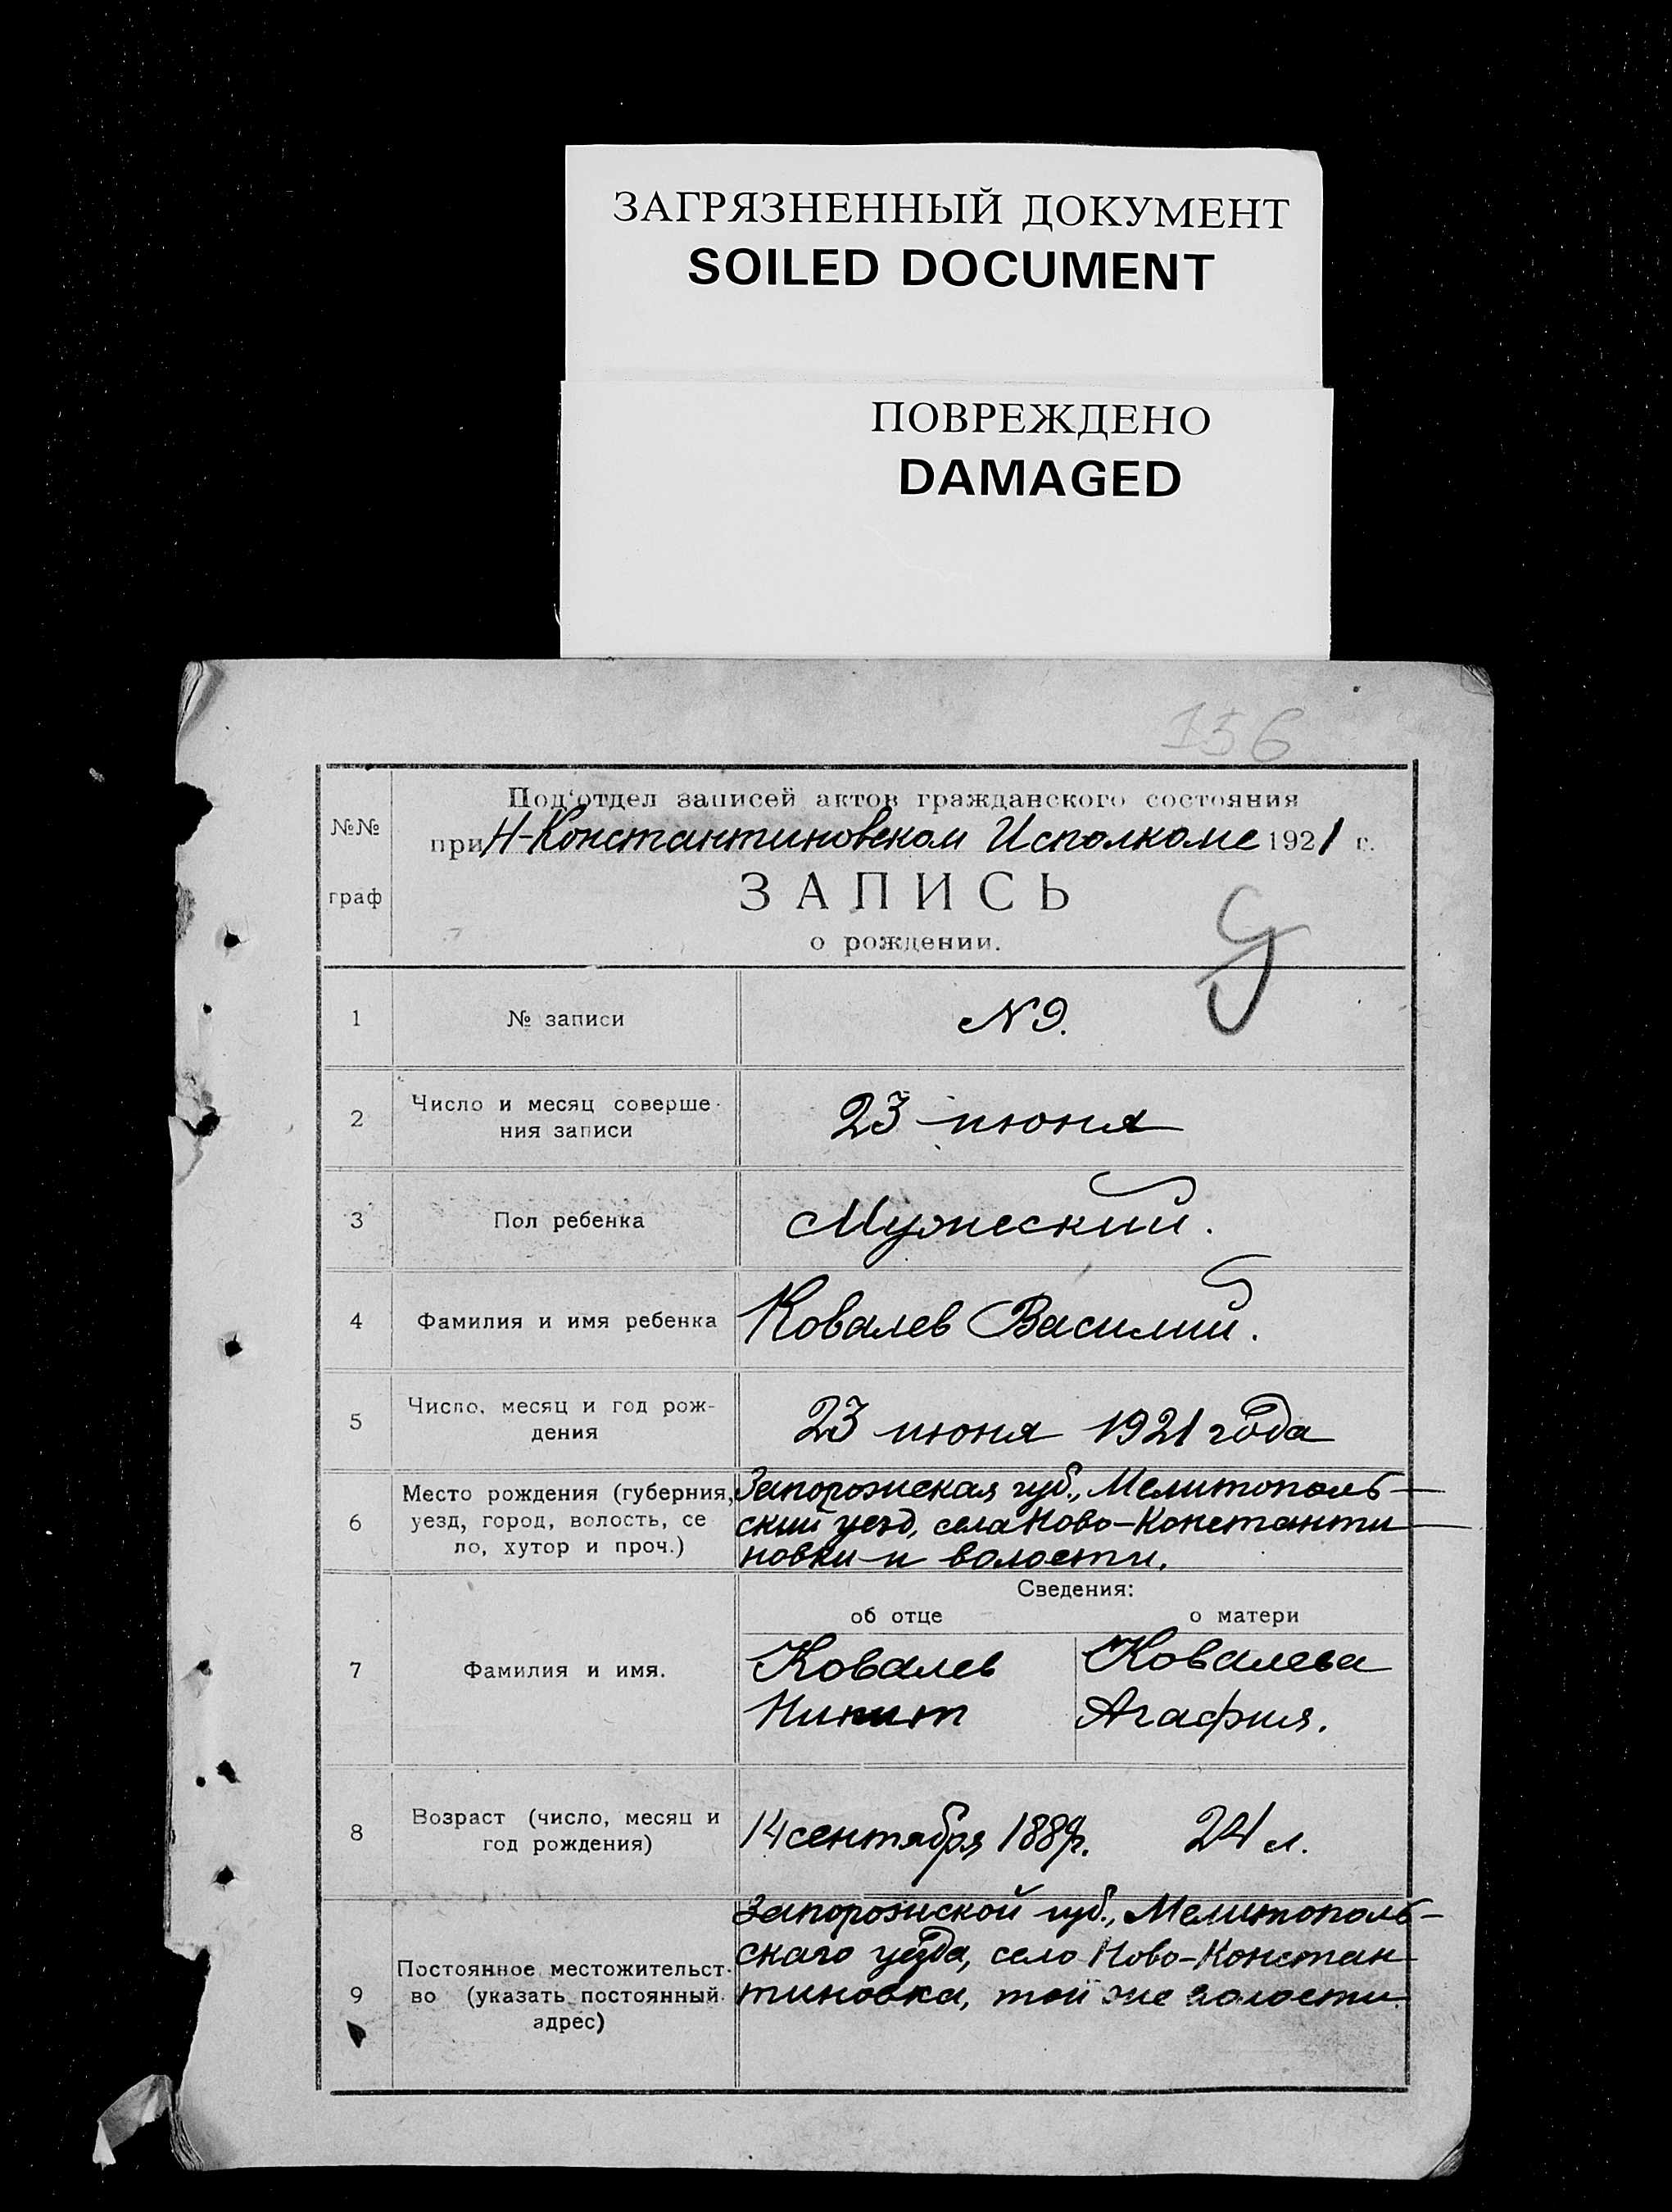 ЗАГРЯЗНЕННЫЙ ДОКУМЕНТ
SOILED DOCUMENT
ПОВРЕЖДЕНО
DAMAGED
156
№№ граф
Под'отдел записей актов гражданского состояния
при Н-Константиновском Исполкоме 1921 г.
ЗАПИСЬ
о рождении.
1 № записи N 9.
2 Число и месяц соверше-
ния записи
23 июня
3 Пол ребенка Мужеский.
4 Фамилия и имя ребенка Ковалев Василий.
5 Число, месяц и год рож-
дения
23 июня 1921 года
6 Место рождения (губерния,
уезд, город, волость, се
ло, хутор и проч.)
Запорожская губ., Мелитополь-
ский уезд, села Ново-Константи
новки и волости.
Сведения:
об отце о матери
7 Фамилия и имя.
Ковалев Ковалева
Никит Агафия.
8 Возраст (число, месяц и
год рождения)
14 сентября 24 л.
9 Постоянное местожительст-
во (указать постоянный
адрес)
Запорожской губ., Мелитополь-
скаго уезда, село Ново-Констан
тиновка, той же волости